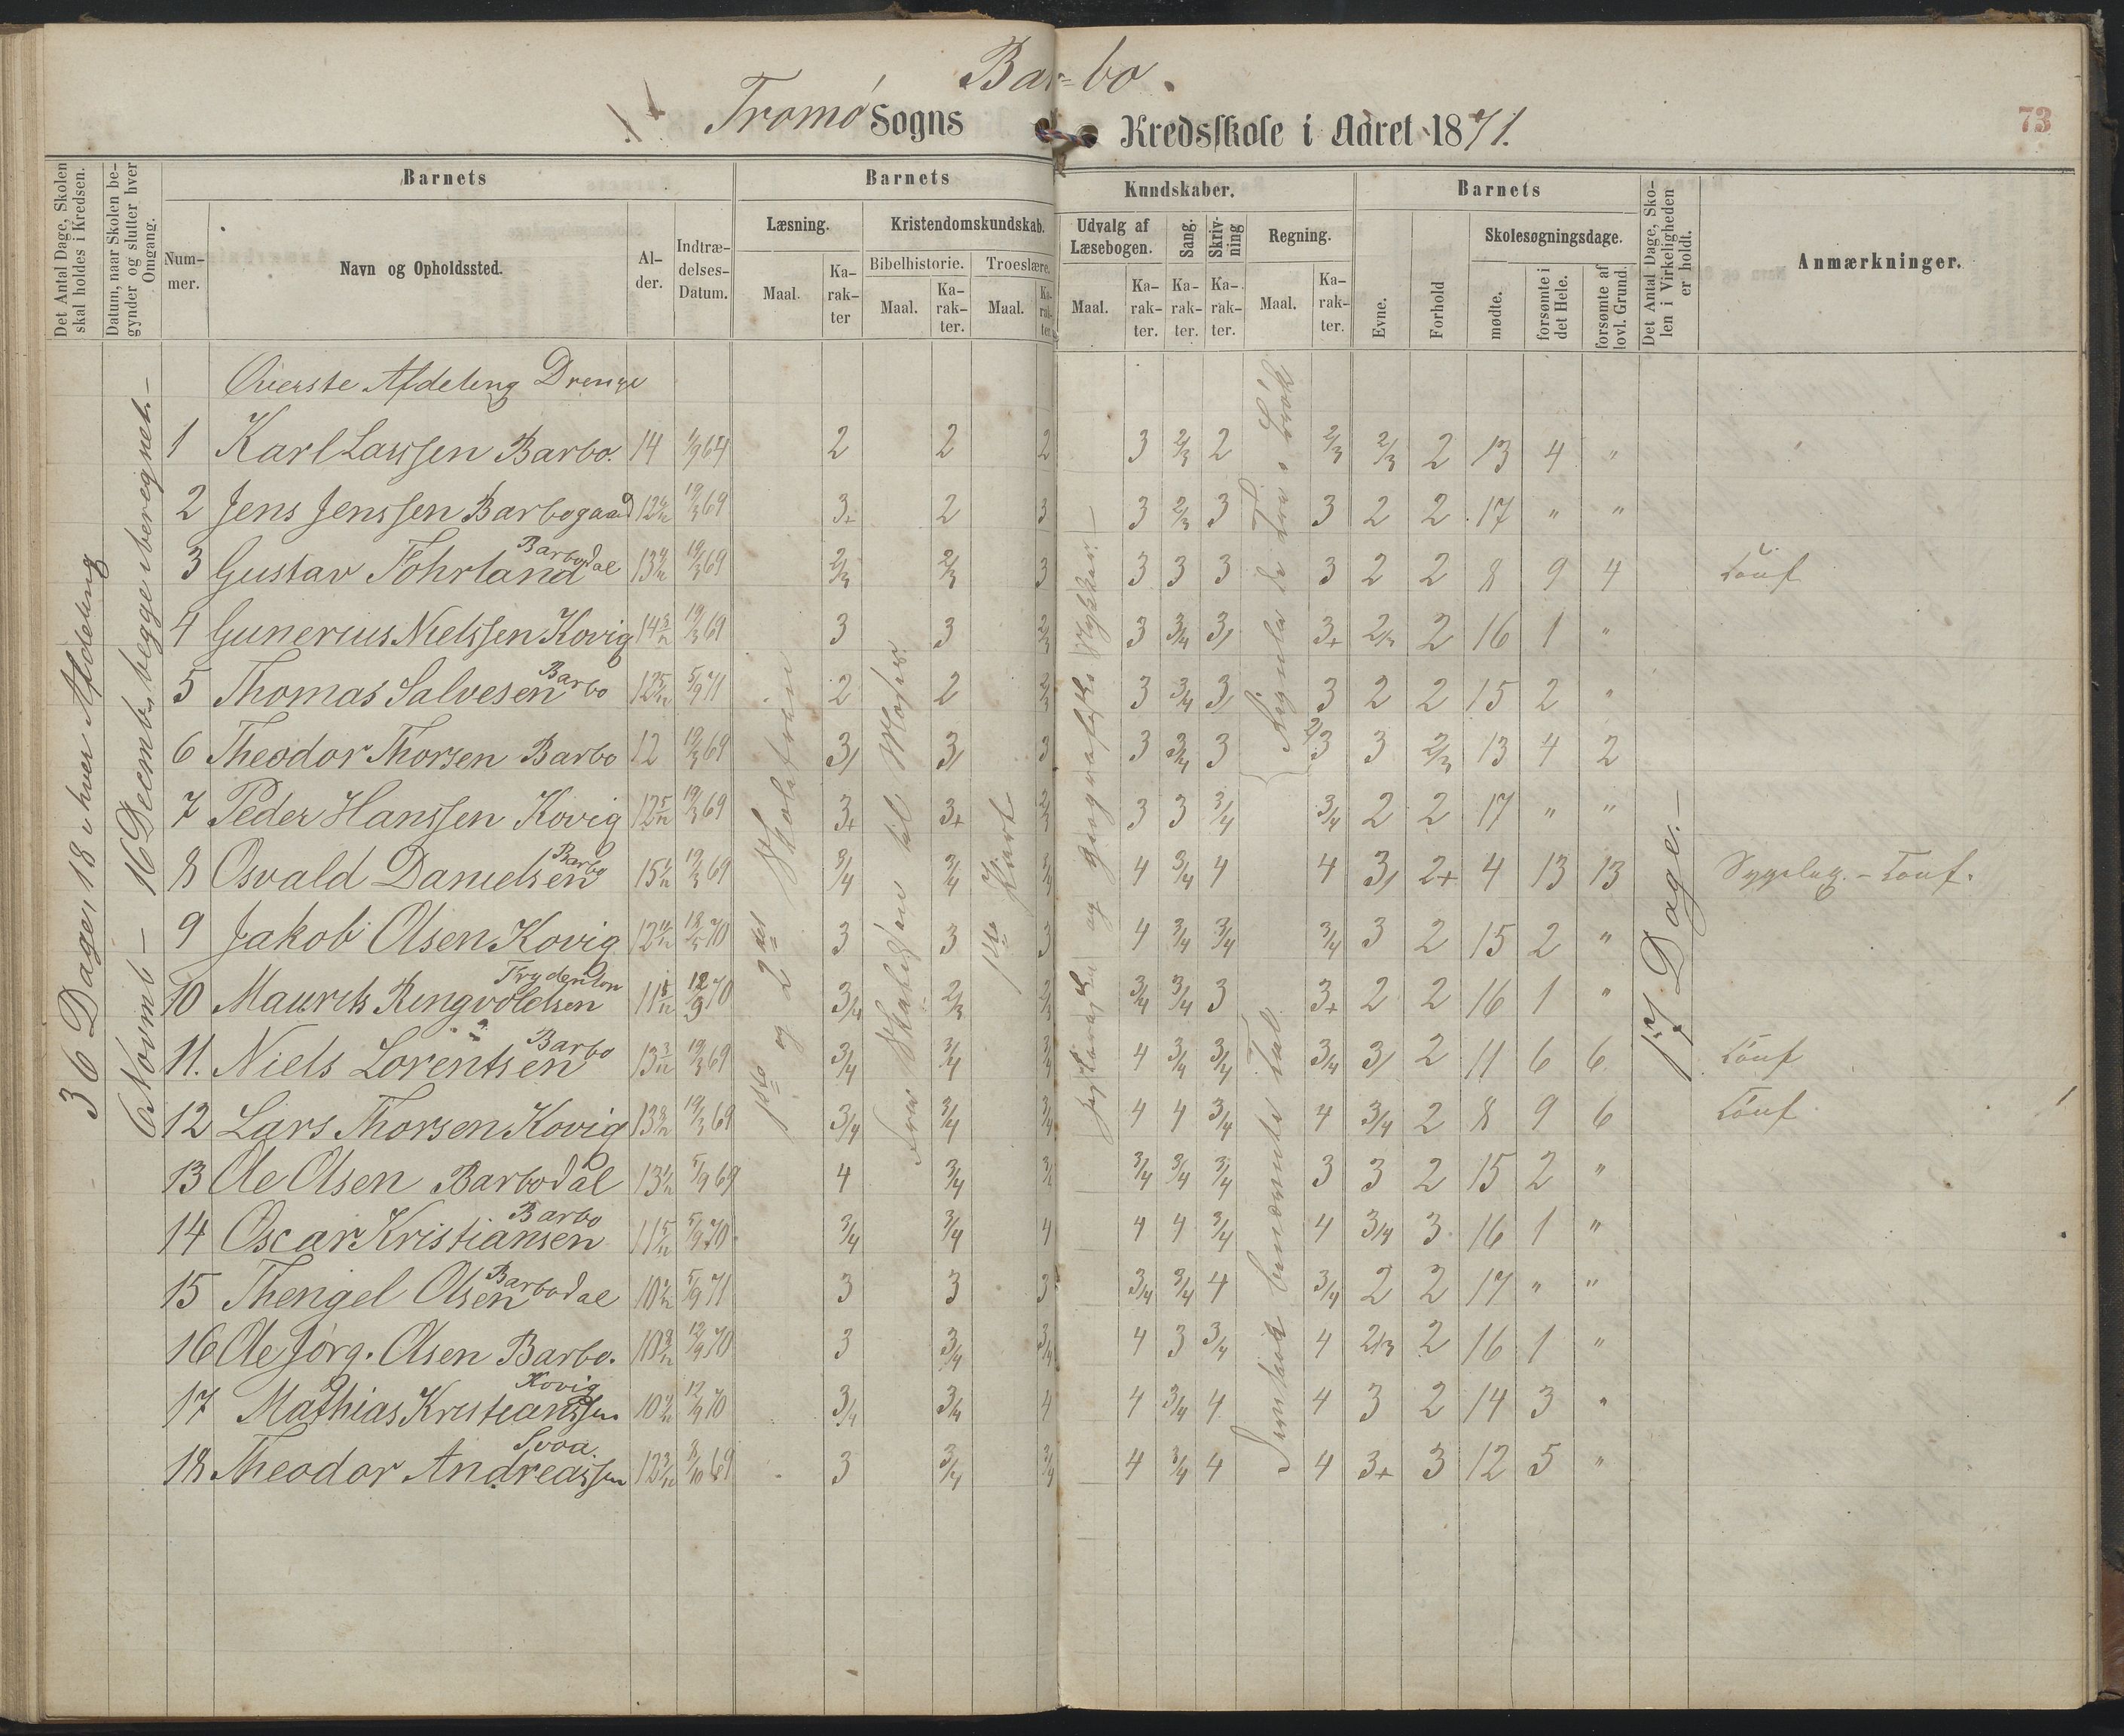 Barbo.
Tromø Sogns Kredsskole i Aaret 1871.
73
Det Antal Dage, Skolen skal holdes i Kredsen.
Datum, naar Skolen begynder og slutter hver Omgang.
Barnets
Nummer.
Navn og Opholdssted.
Alder.
Indtrædelses-Datum.
Barnets
Læsning.
Maal.
Karakter
Kristendomskundskab.
Bibelhistorie.
Maal.
Karakter.
Troeslære.
Maal.
Karakter.
Kundskaber.
Udvalg af Læsebogen.
Maal.
Karakter.
Sang.
Karakter.
Skrivning
Karakter.
Regning.
Maal.
Karakter.
Barnets
Evne.
Forhold
Skolesøgningsdage.
mødte.
forsømte i det Hele.
forsømte af lovl. Grund.
Det Antal Dage, Skolen i Virkeligheden er holdt.
Anmærkninger.
36 Dage, 18 i hver Afdeling
6 Novmb – 16 Decemb, begge iberegnet. –
Øverste Afdeling Drenge
1 Karl Larssen Barbo. 14 2 2 2 3 2/3 2 2/3 2/3 2 13 4 "
2 Jens Jenssen Barbogaard 19/3 69 3+ 2 3 3 2/3 3 3 2 2 17 " "
3 Gustav Fohrland Barbodal 19/3 69 2/3 2/3 3 3 3 3 3 2 2 8 9 4
4 Gunerius Nielssen Kovig 19/3 69 3 3 2/3 3 3/4 3/ 3+ 2/3 2 16 1 "
5 Thomas Salvesen Barbo 5/9 71 2 2 2/3 3 3/4 3/ 3 2 2 15 2 "
6 Theodor Thorsen Barbo 12 19/3 69 3/ 3/ 3 3 3/4 3 2/3 3 2/3 13 4 2
7 Peder Hanssen Kovig 12 5/12 19/3 69 3+ 3+ 2/3 3 3 3/4 3/4 2 2 17 " "
8 Osvald Danielsen Barbo 19/3 69 3/4 3/4 3/4 4 3/4 4 4 3/ 2+ 4 13 13
9 Jakob Olsen Kovig 3 3 3 4 3/4 3/4 3/4 3 2 15 2 "
10 Maurits Ringvoldsen 12/9 70 3/4 2/3 2/3 3/4 3/4 3 3+ 2 2 16 1 "
11. Niels Lorentsen Barbo 13 3/12 19/3 69 3/4 3/4 3/4 4 3/4 3/4 3/4 3/ 2 11 6 6
12 Lars Thorsen Kovig 19/3 69 3/4 3/4 3/4 4 4 3/4 4 3/4 2 8 9 6
13 Ole Olsen Barbodal 5/9 69 4 3/4 3/4 3/4 3/4 3/4 3 3 2 15 2 "
14 Oscar Kristiansen Barbo 11 5/12 5/9 70 3/4 3/4 4 4 4 3/4 4 3/4 3 16 1 "
15 Thengel Olsen Barbodal 5/9 71 3 3 3 3/4 3/4 4 3/4 2 2 17 " "
16 Ole Jørg. Olsen Barbo. 12/9 70 3 3/4 3/4 4 3 3/4 4 2/3 2 16 1 "
17 Mathias Kristianssen Kovig 12/9 70 3/4 3/4 4 4 3/4 4 4 3 2 14 3 "
18 Theodor Andreassen Svoa. 8/10 69 3 3/4 3/4 4 3/4 4 4 3+ 3 12 5 "
1ste og 2det
til Moses
1ste Part
og geografiske Stykker. –
benævnte Tal
17 Dage. –